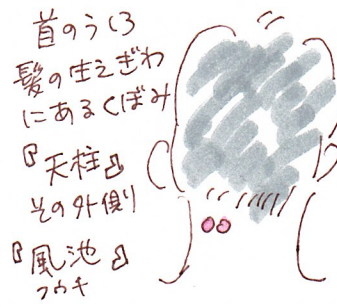 首のうしろ
髪の生えぎわ
にあるくぼみ
『天柱』
その外側り
『風池』
フウチ